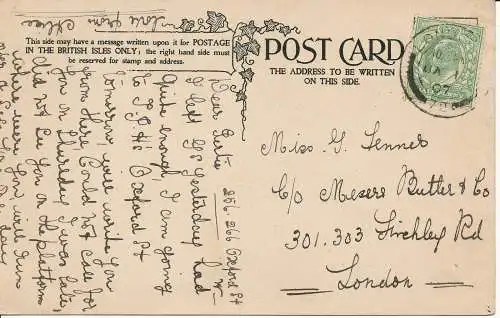 Love from Alice
This side may have a message written upon it for POSTAGE
IN THE BRITISH ISLES ONLY; the right hand side must
be reserved for stamp and address.
POST CARD
THE ADDRESS TO BE WRITTEN
ON THIS SIDE.
256.266 Oxford St
W-
Dear Gertie
I left 208 yesterday had
Quite enough I am going
to T.J.H's Oxford St
tomorrow, will write you
from there Could not call for
you on Thursday I was late,
did not see you on the platform
where were you, will run
over & see you one day
Miss. G. Fenner
C/o Messrs Butter & Co
301.303 Finchley Rd
London
07